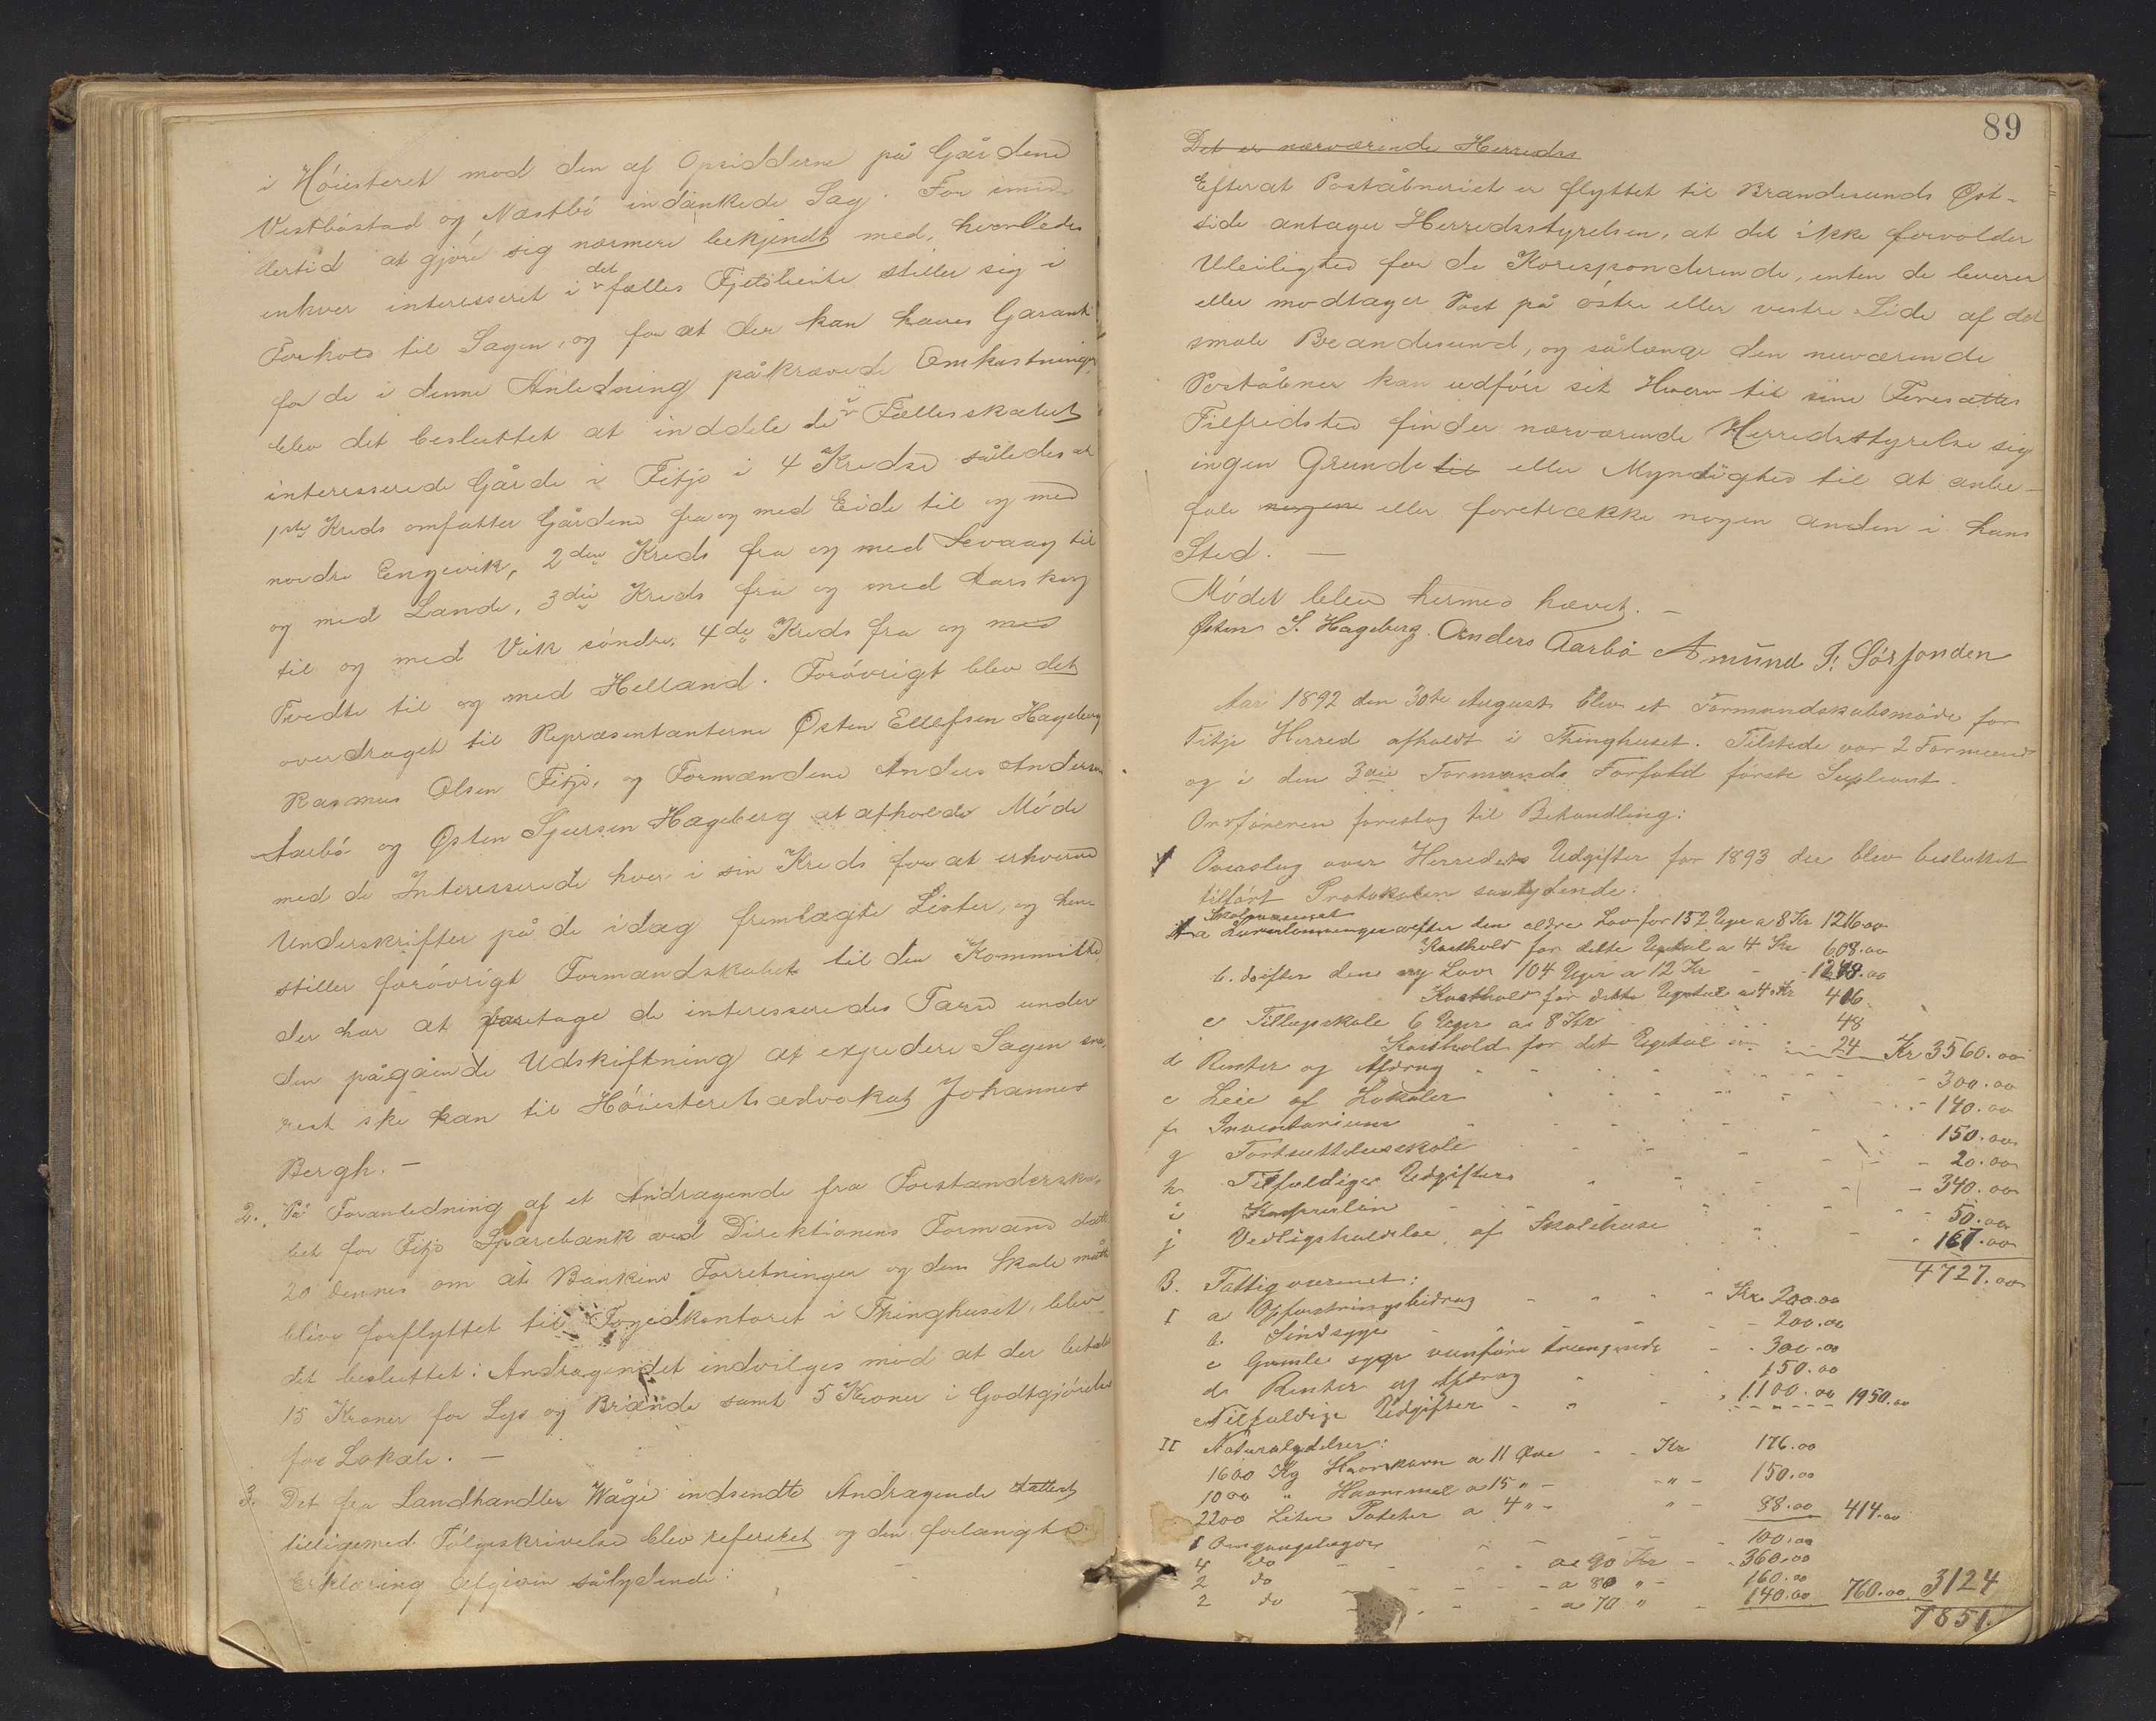 i Höiesteret mod den af Opsidderne på Gårdene
Vestbøstad og Næstbö indankede Sag. For imid-
lertid at gjöre sig nærmere bekjendt med, hvorledes
enhver interesseret i det fælles Fjeldbeite stiller sig i
Forhold til Sagen, og for at der kan haves Garanti
for de i denne Anledning påkrævede Omkostninger,
blev det besluttet at inddele de i Fællesskabet
interesserede Gårde i Fitjo i 4 Kredse således at
1ste Kreds omfatter Gårdene fra og med Eide til og med
nordre Engevik, 2den Kreds fra og med Sevaag til
og med Lande, 3die Kreds fra og med Aarskog
til og med Vik söndre, 4de Kreds fra og med
Tvedte til og med Helland. Forövrigt blev det
overdraget til Repræsentanterne Østen Ellefsen Hageberg
Rasmus Olsen Fitjo, og Formændene Anders Andersen
Aarbö og Østen Sjursen Hageberg at afholde Möde
med de Interesserede hver i sin Kreds for at erhverve
Underskrifter på de idag fremlagte Lister, og hen-
stiller forövrigt Formandskabet til den Kommitte,
der har at foretage de interesseredes Tarv under
den pågående Udskiftning at expedere Sagen sna-
rest ske kan til Höiesteretsadvokat Johannes
Bergh. —
2. På Foranledning af et Andragende fra Forstanderska-
bet for Fitjo Sparebank ved Direktionens Formand datt.
20 dennes om at Bankens Forretninger og dens Skab måtte
blive forflyttet til Fogedkontoret i Thinghuset, blev
det besluttet: Andragendet indvilges mod at der betales
15 Kroner for Lys og Brænde samt 5 Kroner i Godtgjörelse
for Lokale. —
3. Det fra Landhandler Wåge indsendte Andragende dattert
tilligemed Fölgeskrivelse blev refereret og den forlangte
Erklæring afgiven sålydende:
89
Det er nærværende Herreds
Efterat Poståbneriet er flyttet til Brandesunds Øst-
side antager Herredsstyrelsen, at det ikke forvolder
Uleilighed for de Korresponderende, enten de leverer
eller modtager Post på östre eller vestre Side af det
smale Brandesund, og sålænge den nuværende
Poståbner kan udföre sit Hverv til sine Foresattes
Tilfredshed finder nærværende Herredsstyrelse sig
ingen Grunde til eller Myndighed til at anbe-
fale nogen eller foretrække nogen anden i hans
Sted. —
Mödet blev hermed hævet. —
Østen S. Hageberg. Anders Aarbö Amund P. Sörfonden
Aar 1892 den 30te August blev et Formandskabsmöde for
Fitje Herred afholdt i Thinghuset. Tilstede var 2 Formænd
og i den 3die Formands Forfald förste Supleant.
Ordföreren foreslog til Behandling:
1 Overslag over Herredets Udgifter for 1893 der blev besluttet
tilfört Protokolen saalydende:
Skolevæsenet
A a Lærerlönninger efter den ældre Lov for 152 Uger a 8 Kr 1216.00
Kosthold for dette Ugetal a 4 Kr 608.00
b. do efter den ny Lov 104 Uger a 12 Kr 1248.00
Kosthold for dette Ugetal a 4 Kr 416
c Tillægsskole 6 Uger a 8 Kr 48
Kosthold for det Ugetal 24 Kr 3560.00
d Renter og Afdrag 300.00
e Leie af Lokaler 140.00
f Inventarium 150.00
g Fortsættelsesskole 20.00
h Tilfældige Udgifter 340.00
i Kasserer lön 50.00
j Vedligeholdelse af Skolehuse 167.00
4727.00
B. Fattigvæsenet:
I a Opfostringsbidrag Kr. 200.00
b. Sindsyge 200.00
c Gamle syge vanföre trængende 300.00
d. Renter og Afdrag 150.00
e Tilfældige Udgifter 1100.00 1950.00
II Naturalydelser:
1600 Kg Havrekorn a 11 Øre Kr 176.00
1000 " Havremel a 15 " - " - 150.00
2200 Liter Poteter a 4 " - " - 88.00 414.00
1 Omgangslægd 100.00
4 do a 90 Kr 360.00
2 do a 80 " 160.00
2 do a 70 " 140.00 760.00 3124
7851.